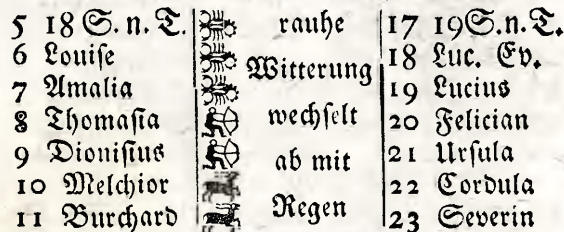 5 18 S. n. T. rauhe 17 19 S. n. T.
6 Louiſe Witterung 18 Luc. Ev.
7 Amalia 19 Lucius
8 Thomaſia wechſelt 20 Felician
9 Dioniſius ab mit 21 Urſula
10 Melchior 22 Cordula
11 Burchard Regen 23 Severin